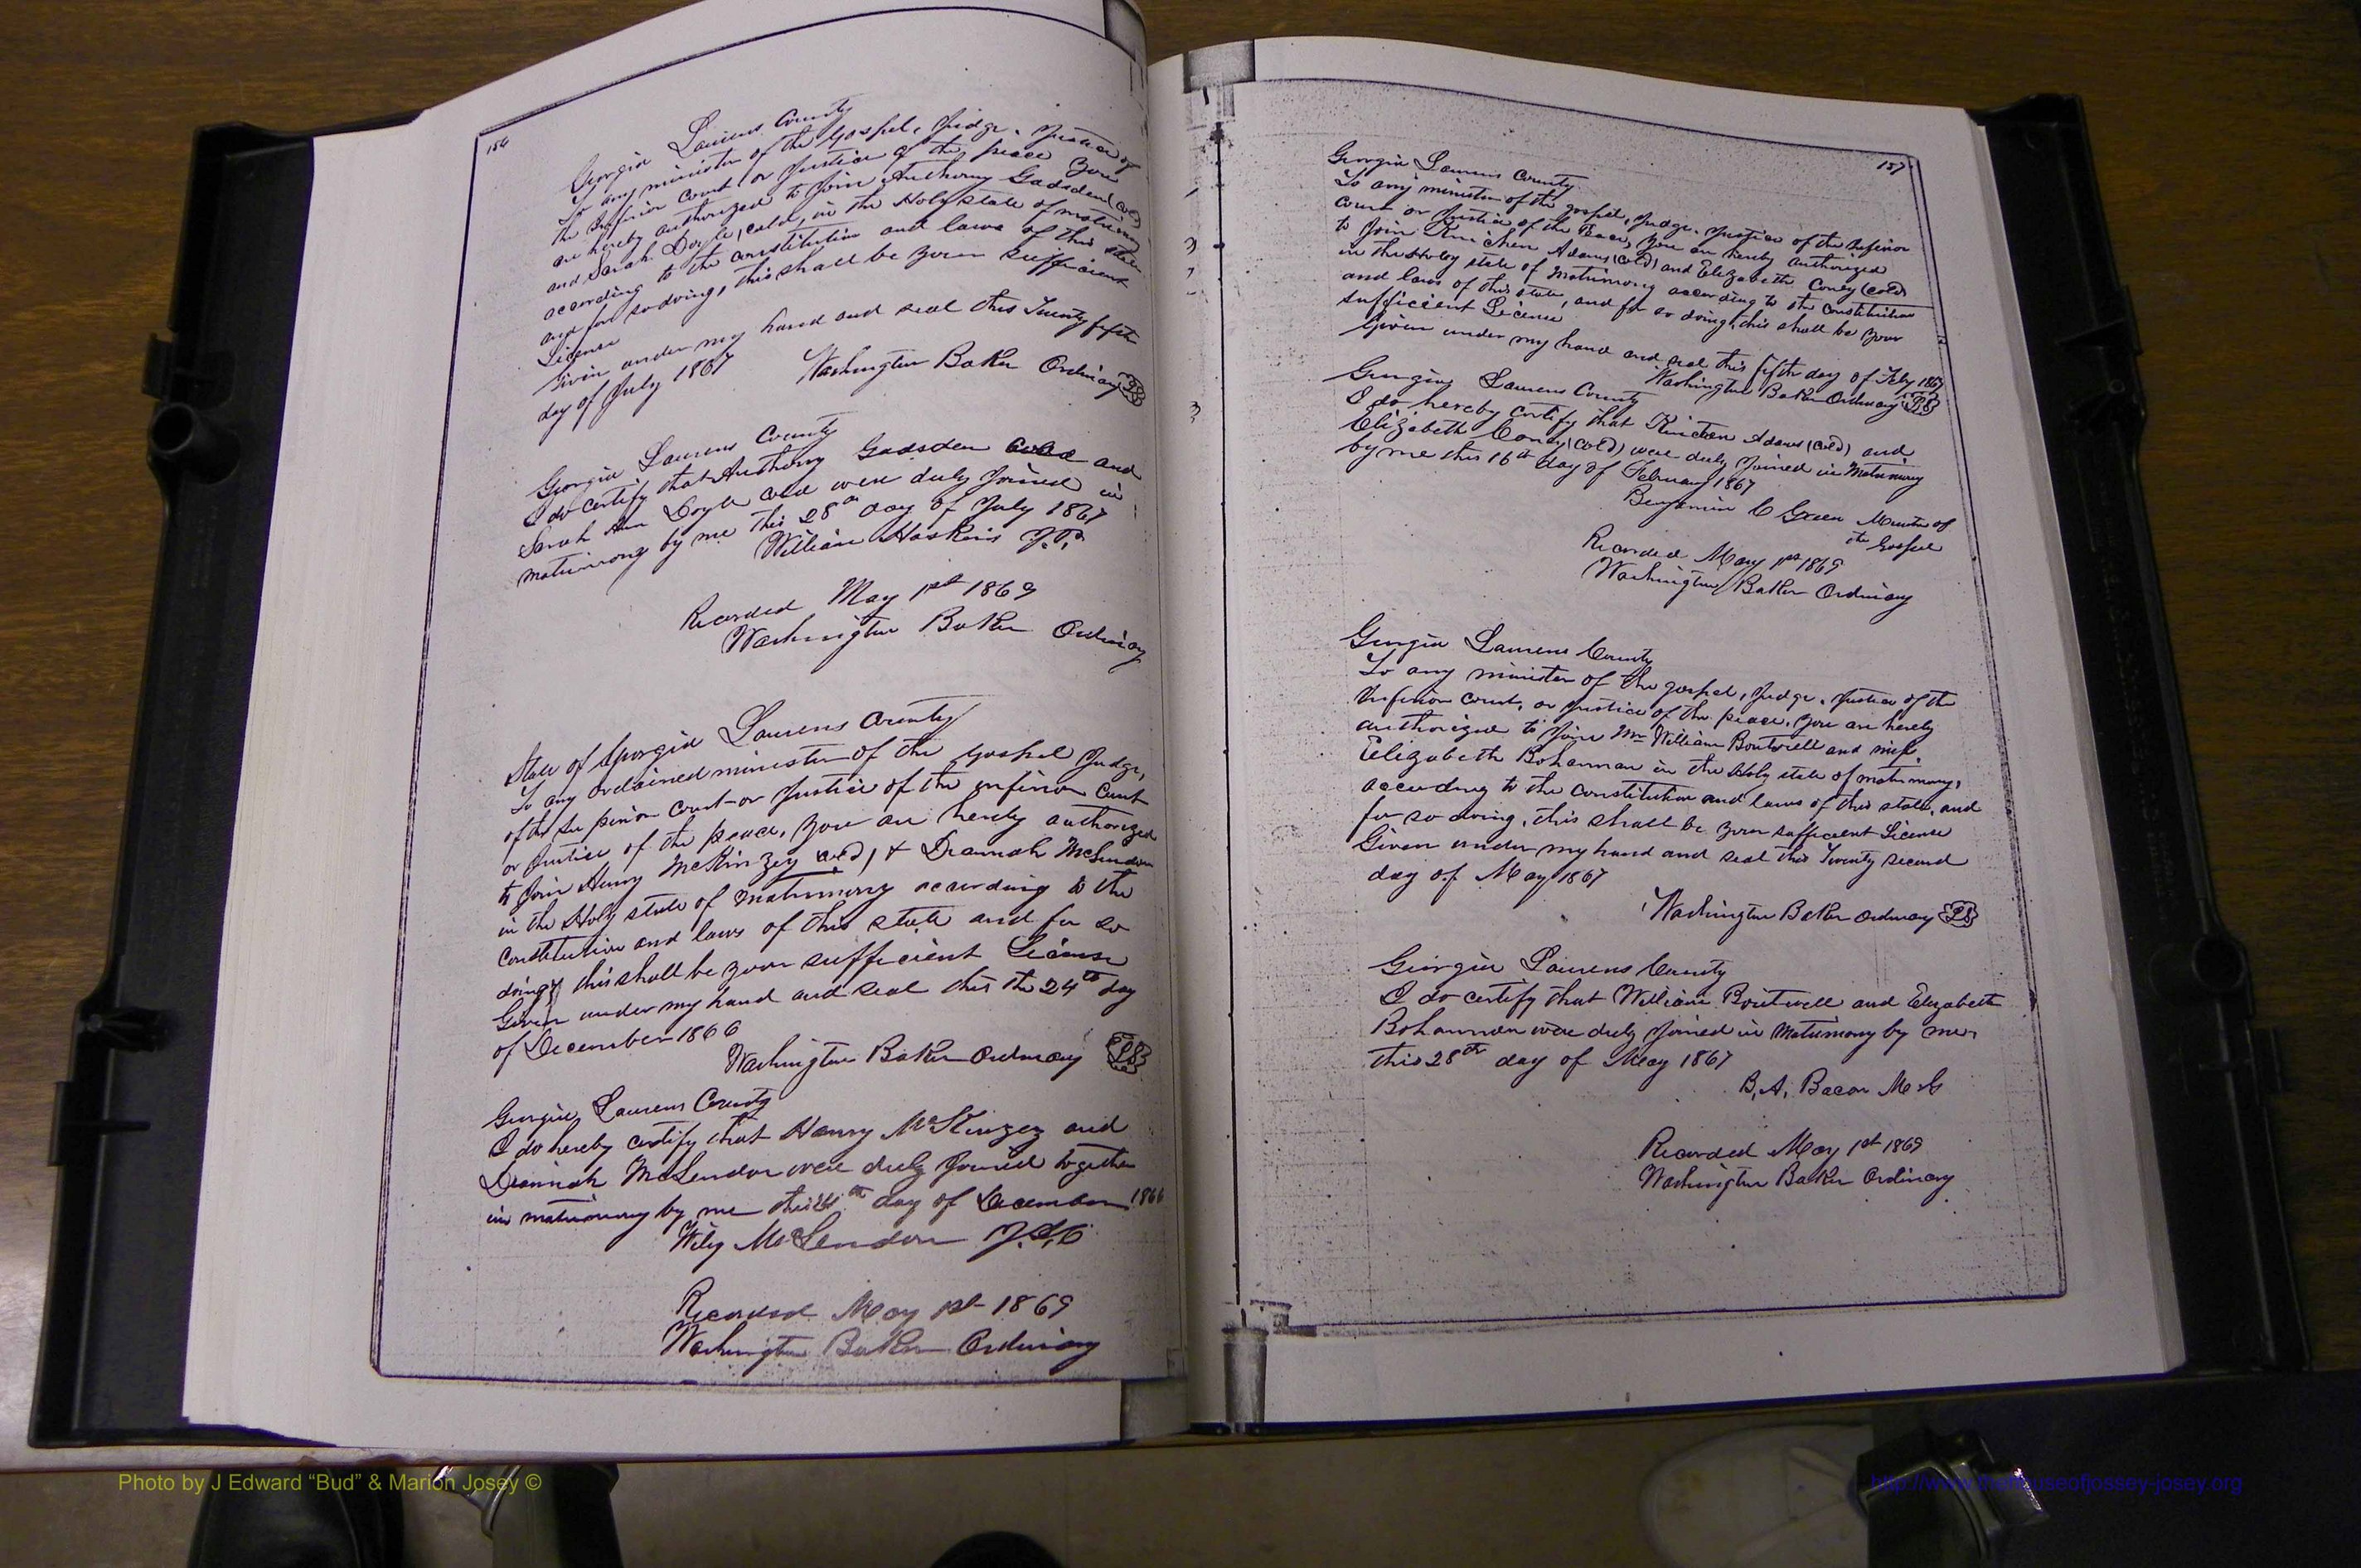 156
Georgia Laurens County
To any minister of the gospel, Judge, Justice of
the Inferior Court or Justice of the peace you
are hereby authorized to Join Anthony Gadsden (cold)
and Sarah Doyle, cold, in the Holy state of matrimony
according to the constitution and laws of this state
and for so doing, this shall be your sufficient
License
Given under my hand and seal this Twenty fifth
day of July 1867
Washington Baker Ordinary LS
Georgia Laurens County
I do certify that Anthony Gadsden cold and
Sarah Ann Doyle cold were duly Joined in
matrimony by me this 28th day of July 1867
William Haskins J.P.
Recorded May 1st 1869
Washington Baker Ordinary
State of Georgia Laurens County
To any ordained minister of the gospel Judge,
of the Superior court or Justice of the inferior Court
or Justice of the peace, you are hereby authorized
to Join Henry McKinzey (cold) & Diannah McLendon
in the Holy state of Matrimony according to the
constitution and laws of this state and for so
doing this shall be your sufficient License
Given under my hand and seal this the 24th day
of December 1866
Washington Baker Ordinary LS
Georgia, Laurens County
I do hereby certify that Henry McKinzey and
Diannah McLendon were duly Joined together
in matrimony by me this day of December 1866
Wiley McLendon J.I.C
Recorded May 1st 1869
Washington Baker Ordinary
157
Georgia Laurens County
To any minister of the gospel, Judge, Justice of the Inferior
court or Justice of the Peace, you are hereby authorized
to Join Kinchen Adams (cold) and Elizabeth Coney (cold)
in the Holy state of Matrimony according to the constitution
and laws of this state, and for so doing, this shall be your
sufficient License
Given under my hand and seal this fifth day of Feby 1867
Washington Baker Ordinary LS
Georgia Laurens County
I do hereby certify that Kinchen Adams (cold) and
Elizabeth Coney (cold) were duly Joined in Matrimony
by me this 16th day of February 1867
Benjamin C Green Minister of
the Gospel
Recorded May 1st 1869
Washington Baker Ordinary
Georgia Laurens County
To any minister of the gospel, Judge, Justice of the
Inferior court, or Justice of the peace, you are hereby
authorized to Join Mr William Boutwell and miss,
Elizabeth Bohannan in the Holy state of matrimony,
according to the constitution and laws of this state, and
for so doing, this shall be your sufficient License
Given under my hand and seal this Twenty second
day of May 1867
Washington Baker Ordinary LS
Georgia Laurens County
I do certify that William Boutwell and Elizabeth
Bohannon were duly Joined in Matrimony by me,
this 28th day of May 1867
B, A, Bacon M G
Recorded May 1st 1869
Washington Baker Ordinary
Photo by J Edward “Bud” & Marion Josey ©
http://www.thehouseofjossey-josey.org